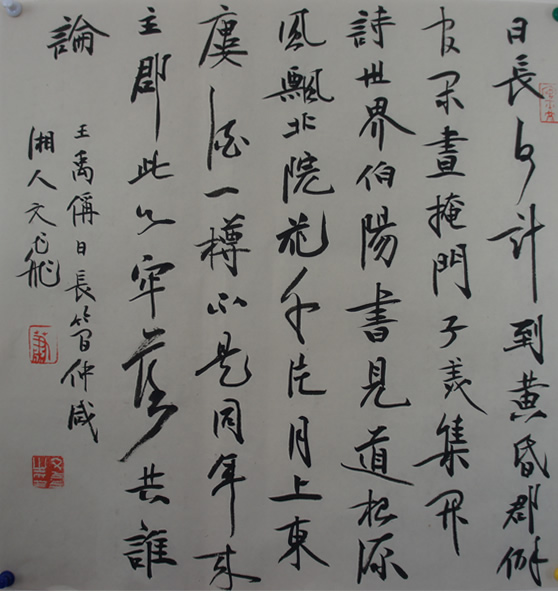 日長何計到黃昏郡僻
官閑晝掩門子美集開
詩世界伯陽書見道根源
風飄北院花千片月上東
廔酒一樽不是同年來
主郡此心牢落共誰
論
王禹偁日長簡仲咸
湘人文